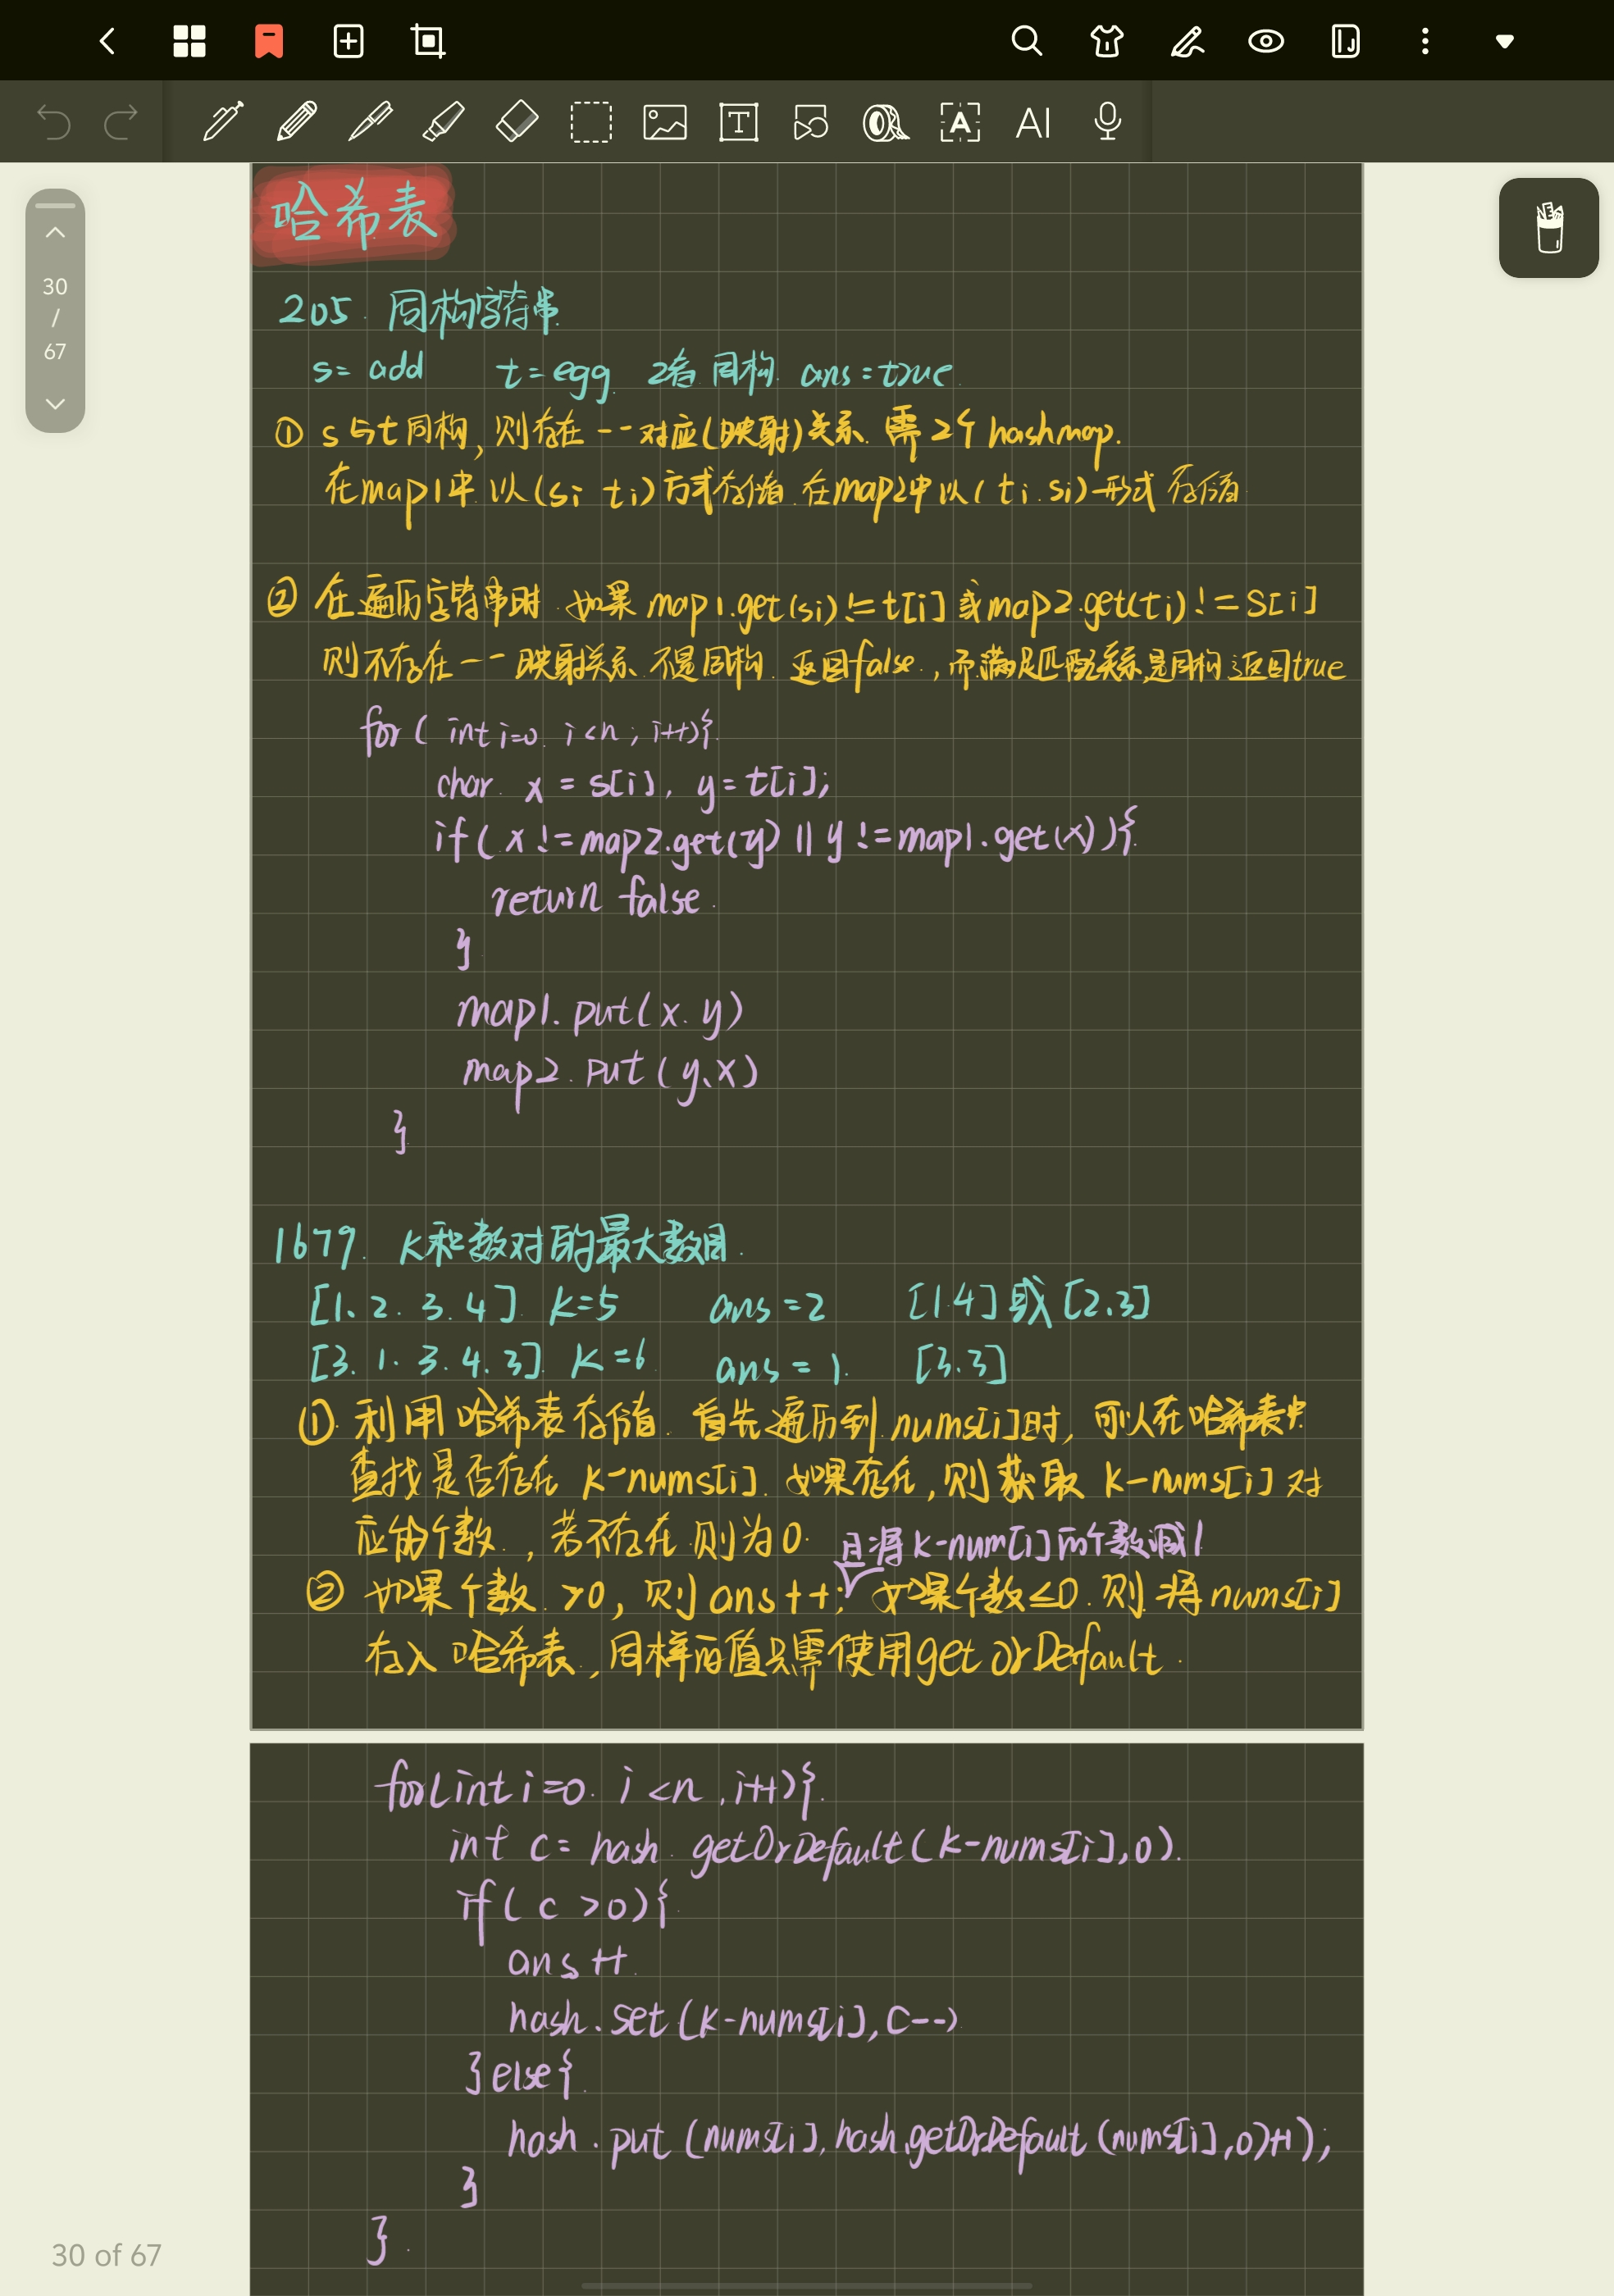 30
/
67
T
A
AI
哈希表
205. 同构字符串
s= add t=egg 2者同构. ans=true
① s与t同构,则存在一一对应(映射)关系.需2个hashmap.
在map1中以(si ti)方式存储.在map2中以(ti.si)形式存储
② 在遍历字符串时.如果map1.get(si)!=t[i]或map2.get(ti)!=s[i]
则不存在一一映射关系.不是同构.返回false,而满足匹配关系是同构返回true
for( int i=0. i<n; i++){
char x = s[i], y=t[i];
if( x!=map2.get(y) || y!=map1.get(x)){
return false.
}
map1.put(x.y)
map2.put(y、x)
}
1679. K和数对的最大数目.
[1、2.3.4] K=5 ans=2 [1.4]或[2.3]
[3.1.3.4.3] K=6 ans=1. [3.3]
①.利用哈希表存储.首先遍历到nums[i]时,可以在哈希表中
查找是否存在 k-nums[i].如果存在,则获取 k-nums[i]对
应的个数.,若不存在.则为0.
且将k-num[i]的个数减1
② 如果个数>0,则ans++;如果个数≤0.则将nums[i]
存入哈希表,同样的值只需使用getOrDefault.
for(int i=0. i<n,i++){
int c= hash.getOrDefault(k-nums[i],0).
if( c >0){
ans++.
hash.set(k-nums[i],c--)
}else{
hash.put(nums[i],hash.getOrDefault(nums[i],0)+1);
}
}
30 of 67